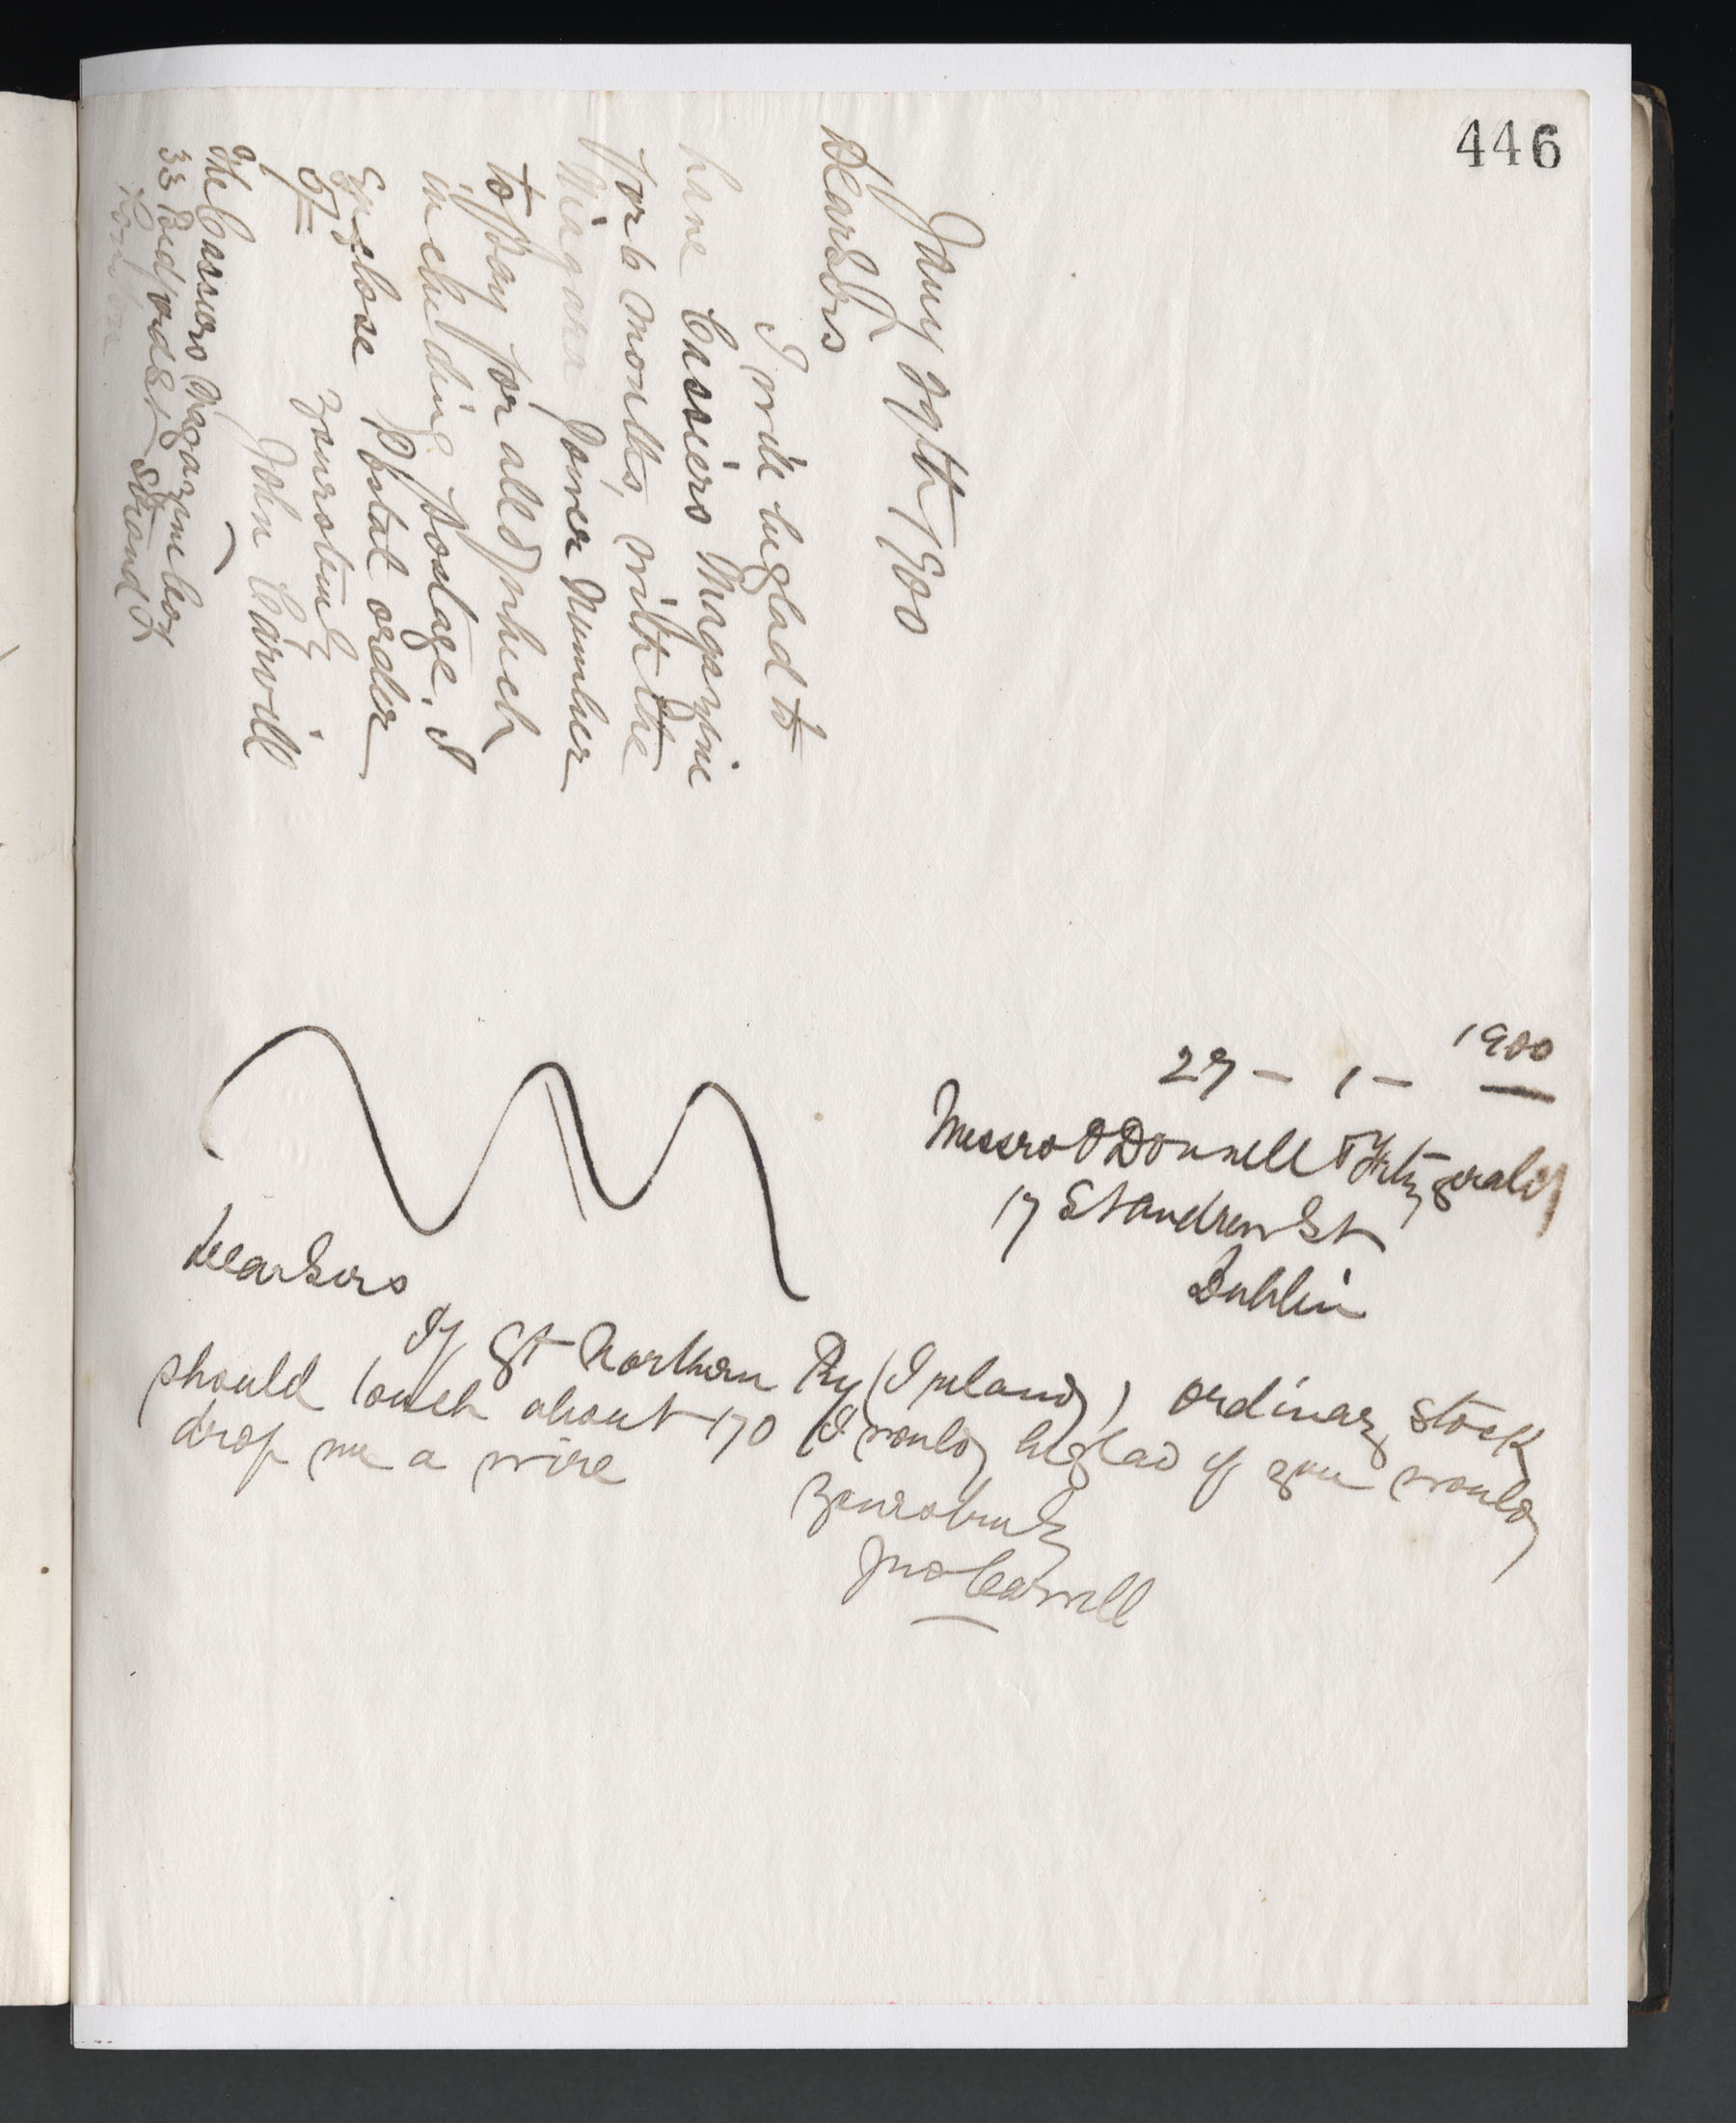 446
Jany 27th 1900
Dear Sirs
I will be glad to
have Cassiers Magazine
for 6 months, with the
Niagara Power Number
to pay for all of which
including postage, I
Enclose Postal order
9/=
Yours truly
John Carvill
The Cassiers Magazine Coy
33 Bedford St Strand
London
27 - 1 - 1900
Messrs O'Donnell & Fitzgerald
17 St Andrew St
Dublin
Dear Sirs
If Gt Northern Ry (Ireland) ordinary Stock
should touch about 170 I would be glad if you would
drop me a wire
Yours truly
Jno Carvill